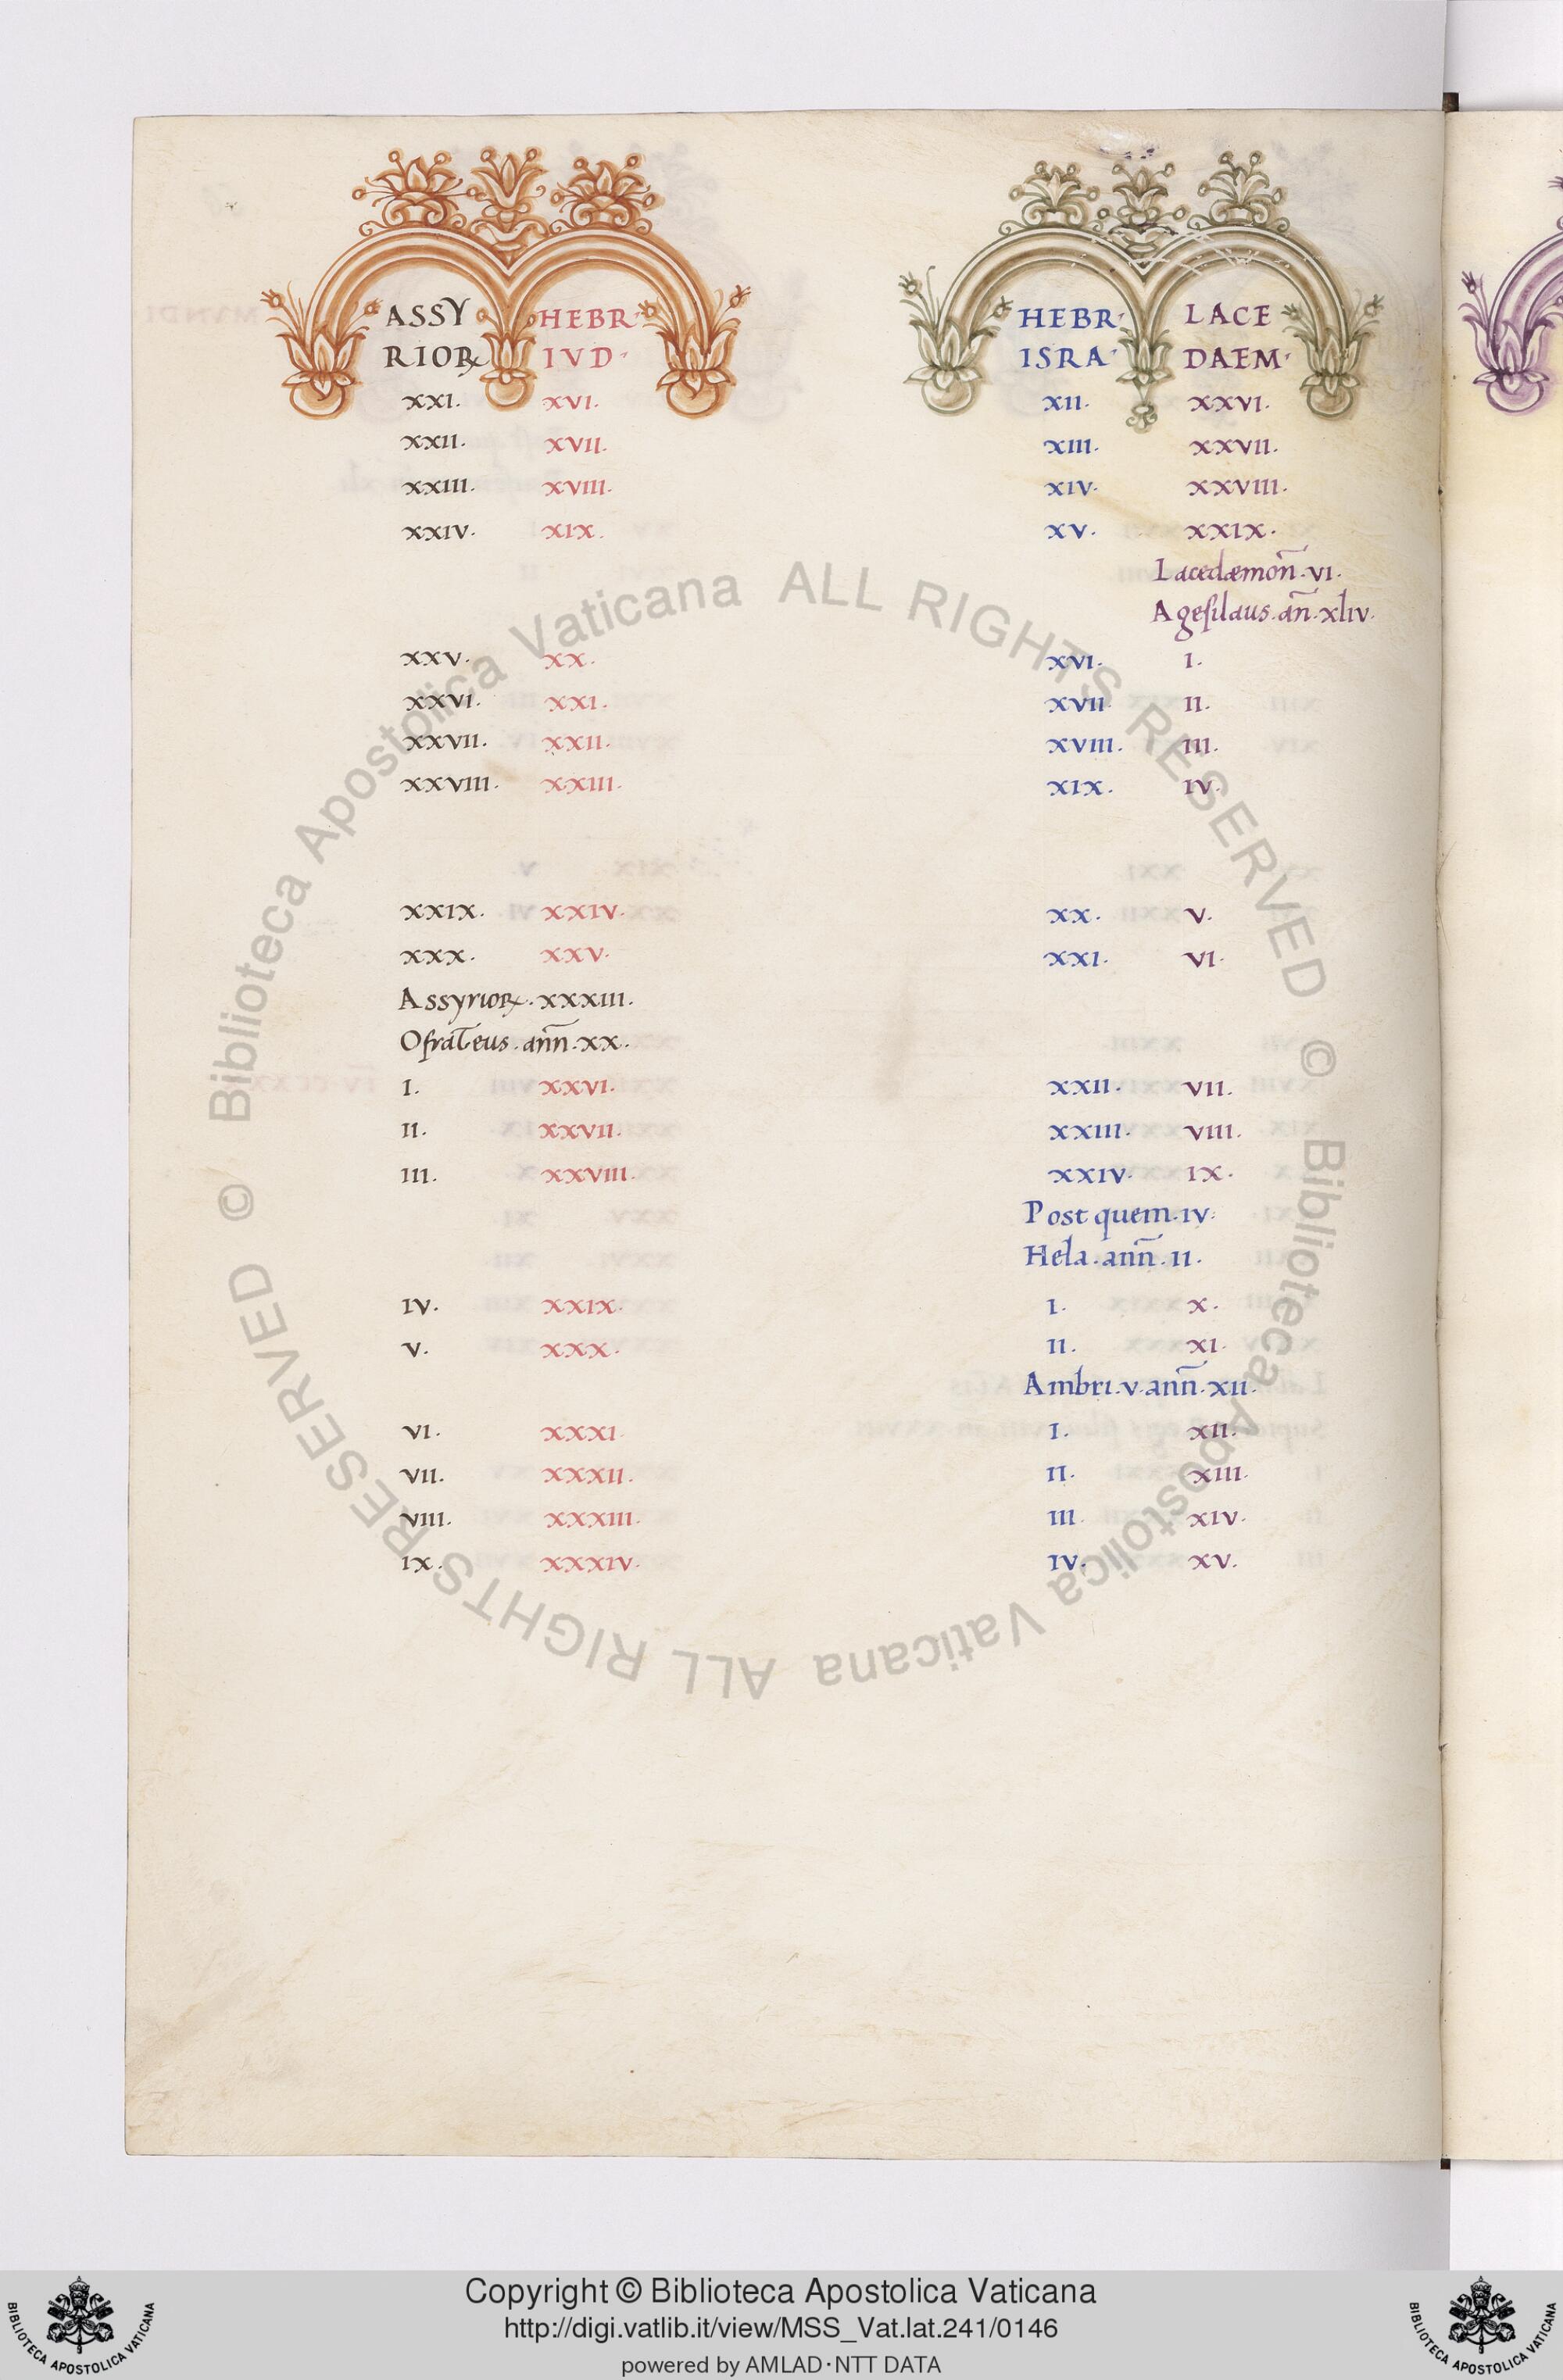 ASSY HEBR· HEBR· LACE
RIOꝜ IVD· ISRA· DAEM·
XXI. XVI. XII. XXVI.
XXII. XVII. XIII. XXVII.
XXIII. XVIII. XIV. XXVIII.
XXIV. XIX. XV. XXIX.
Lacedæmoñ.VI.
Agesilaus.añ.xliv.
XXV. XX. XVI. I.
XXVI. XXI. XVII. II.
XXVII. XXII. XVIII. III.
XXVIII. XXIII. XIX. IV.
XXIX. XXIV. XX. V.
XXX. XXV. XXI. VI.
AssyrioꝜ.XXXIII.
Ofrat̄eus.ann̄.XX.
I. XXVI. XXII. VII.
II. XXVII. XXIII. VIII.
III. XXVIII. XXIV. IX.
Post quem.IV.
Hela.ann̄.II.
IV. XXIX. I. X.
V. XXX. II. XI.
Ambri.V.ann̄.XII.
VI. XXXI. I. XII.
VII. XXXII. II. XIII.
VIII. XXXIII. III. XIV.
IX. XXXIV. IV. XV.
© Biblioteca Apostolica Vaticana ALL RIGHTS RESERVED
© Biblioteca Apostolica Vaticana ALL RIGHTS RESERVED
Copyright © Biblioteca Apostolica Vaticana
http://digi.vatlib.it/view/MSS_Vat.lat.241/0146
powered by AMLAD·NTT DATA
BIBLIOTECA APOSTOLICA VATICANA
BIBLIOTECA APOSTOLICA VATICANA